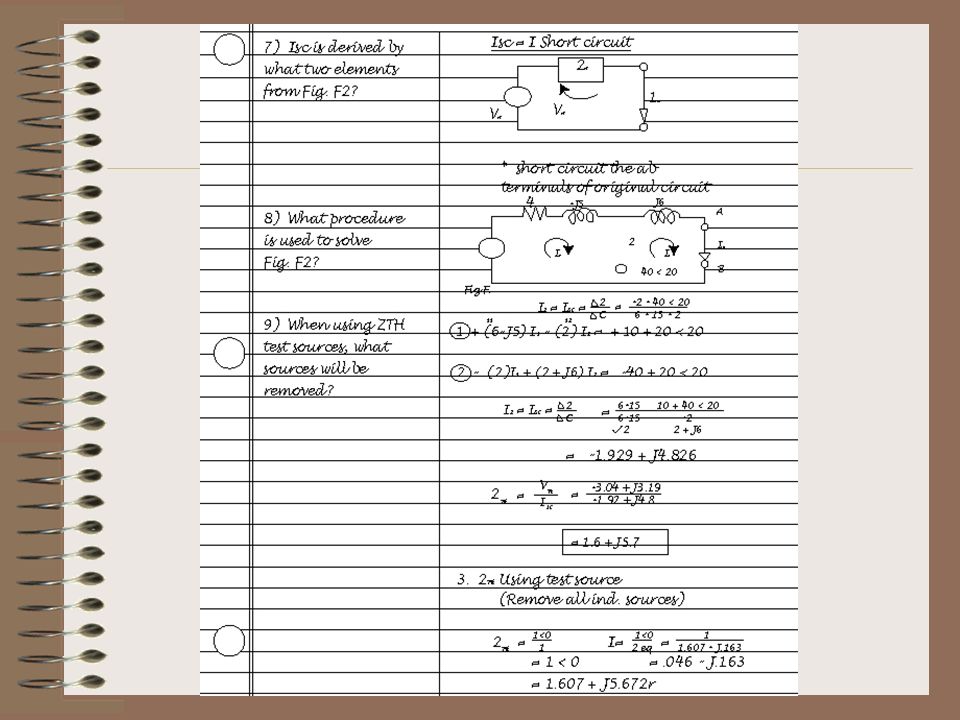 7) Isc is derived by
what two elements
from Fig. F2?
8) What procedure
is used to solve
Fig. F2?
9) When using ZTH
test sources, what
sources will be
removed?
Isc = I Short circuit
2.
* short circuit the ab
terminals of original circuit
4 -J5 J6
A
I
2
I
40 < 20
B
I2 = Isc = Δ2/ΔC = -2 + 40 < 20
1 + (6-J5) I1 - (2) I2 = + 10 + 20 < 20
2 - (2)I1 + (2 + J6) I2 = -40 + 20 < 20
I2 = Isc = Δ2/ΔC = 10 + 40 < 20
2 + J6
= -1.929 + J4.826
-3.04 + J3.19
-1.92 + J4.8
= 1.6 + J5.7
3. 2TH Using test source
(Remove all ind. sources)
2TH = 1<0/1 I = 1<0/2 eq = 1/1.607 + J.163
= 1 < 0 = .046 - J.163
= 1.607 + J5.672r